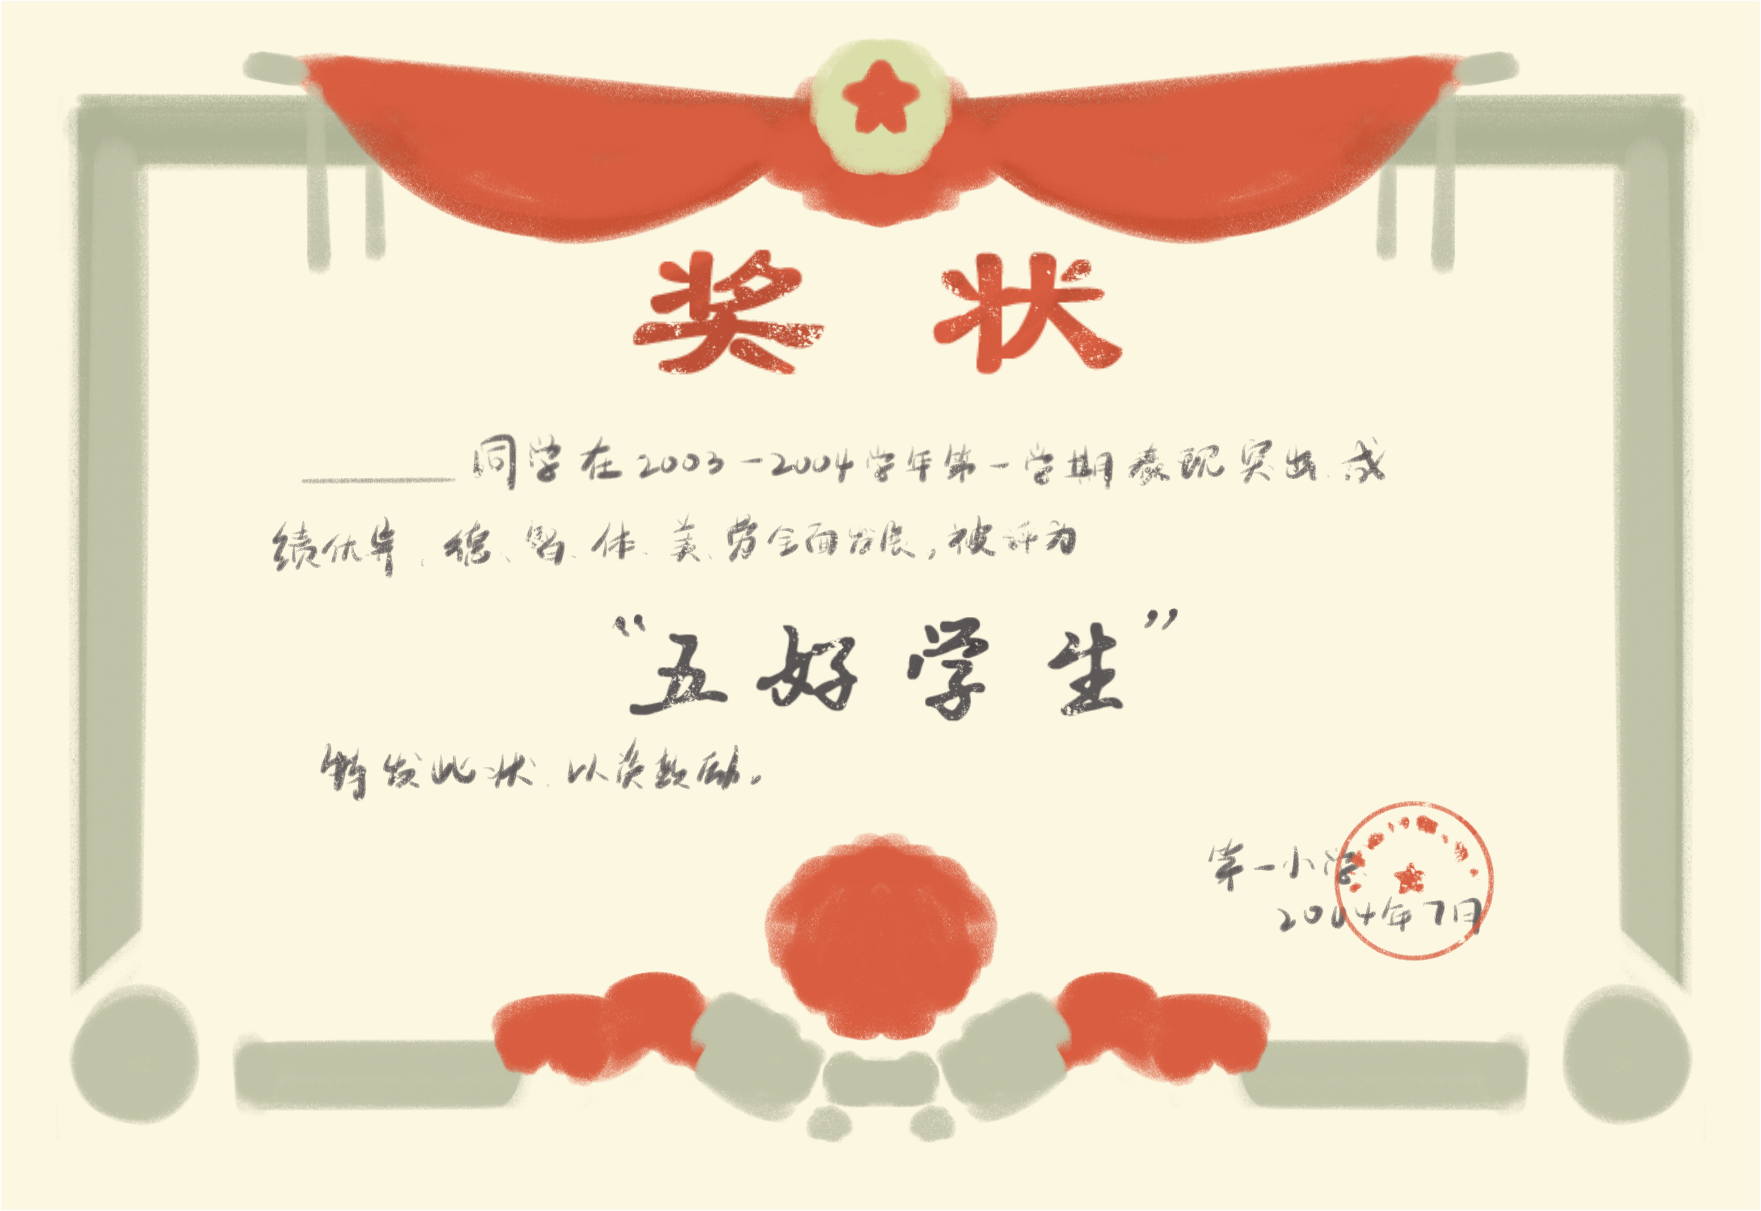 奖状
同学在2003-2004学年第一学期表现突出、成
绩优异、德、智、体、美、劳全面发展,被评为
“五好学生”
特发此状、以资鼓励。
第一小学
2004年7月